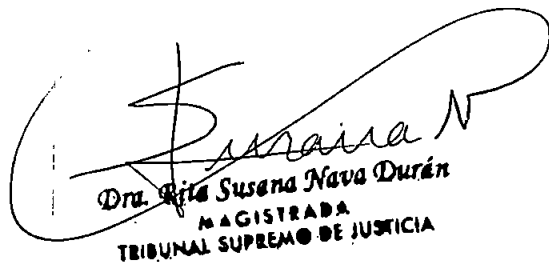 Dra. Rita Susana Nava Durán
MAGISTRADA
TRIBUNAL SUPREMO DE JUSTICIA